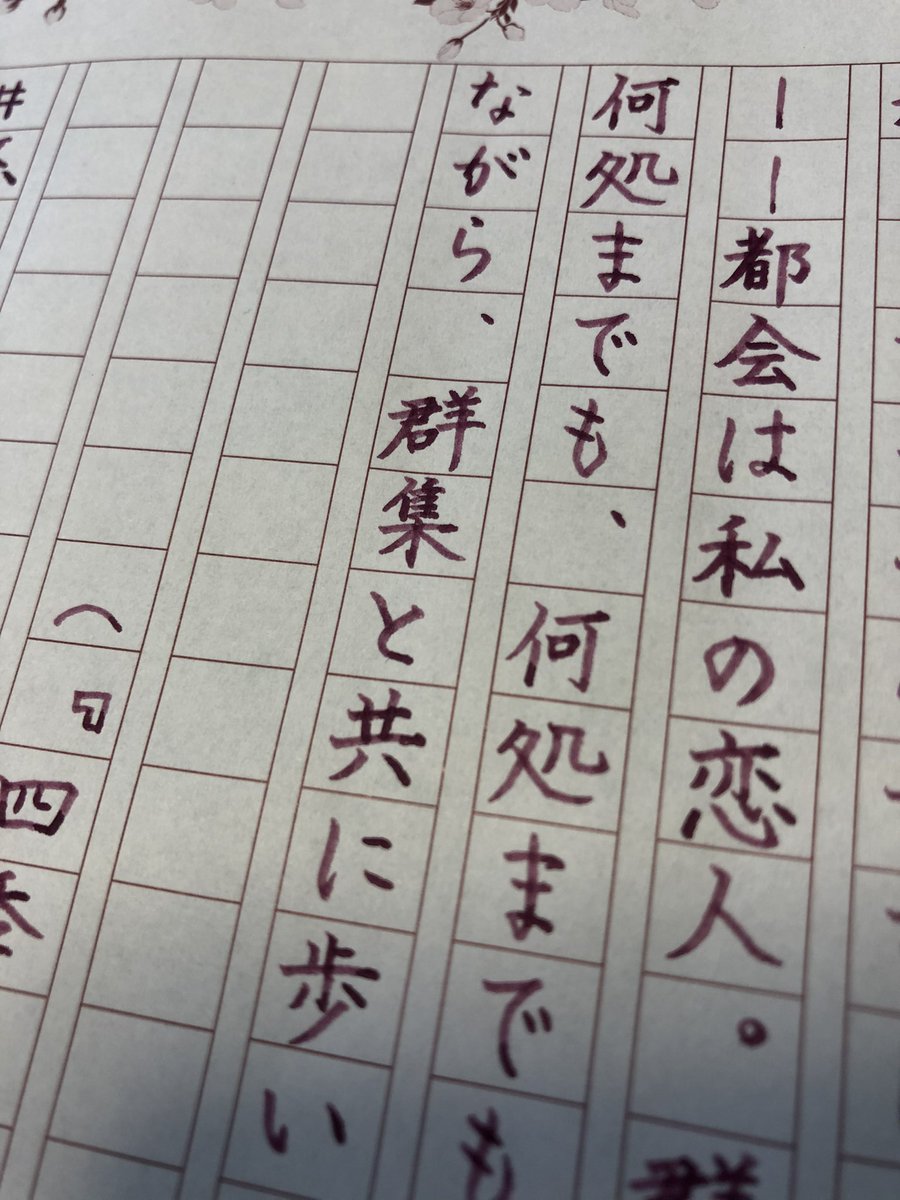 ――都会は私の恋人。群
何処までも、何処までも
ながら、群集と共に歩い
(『四季